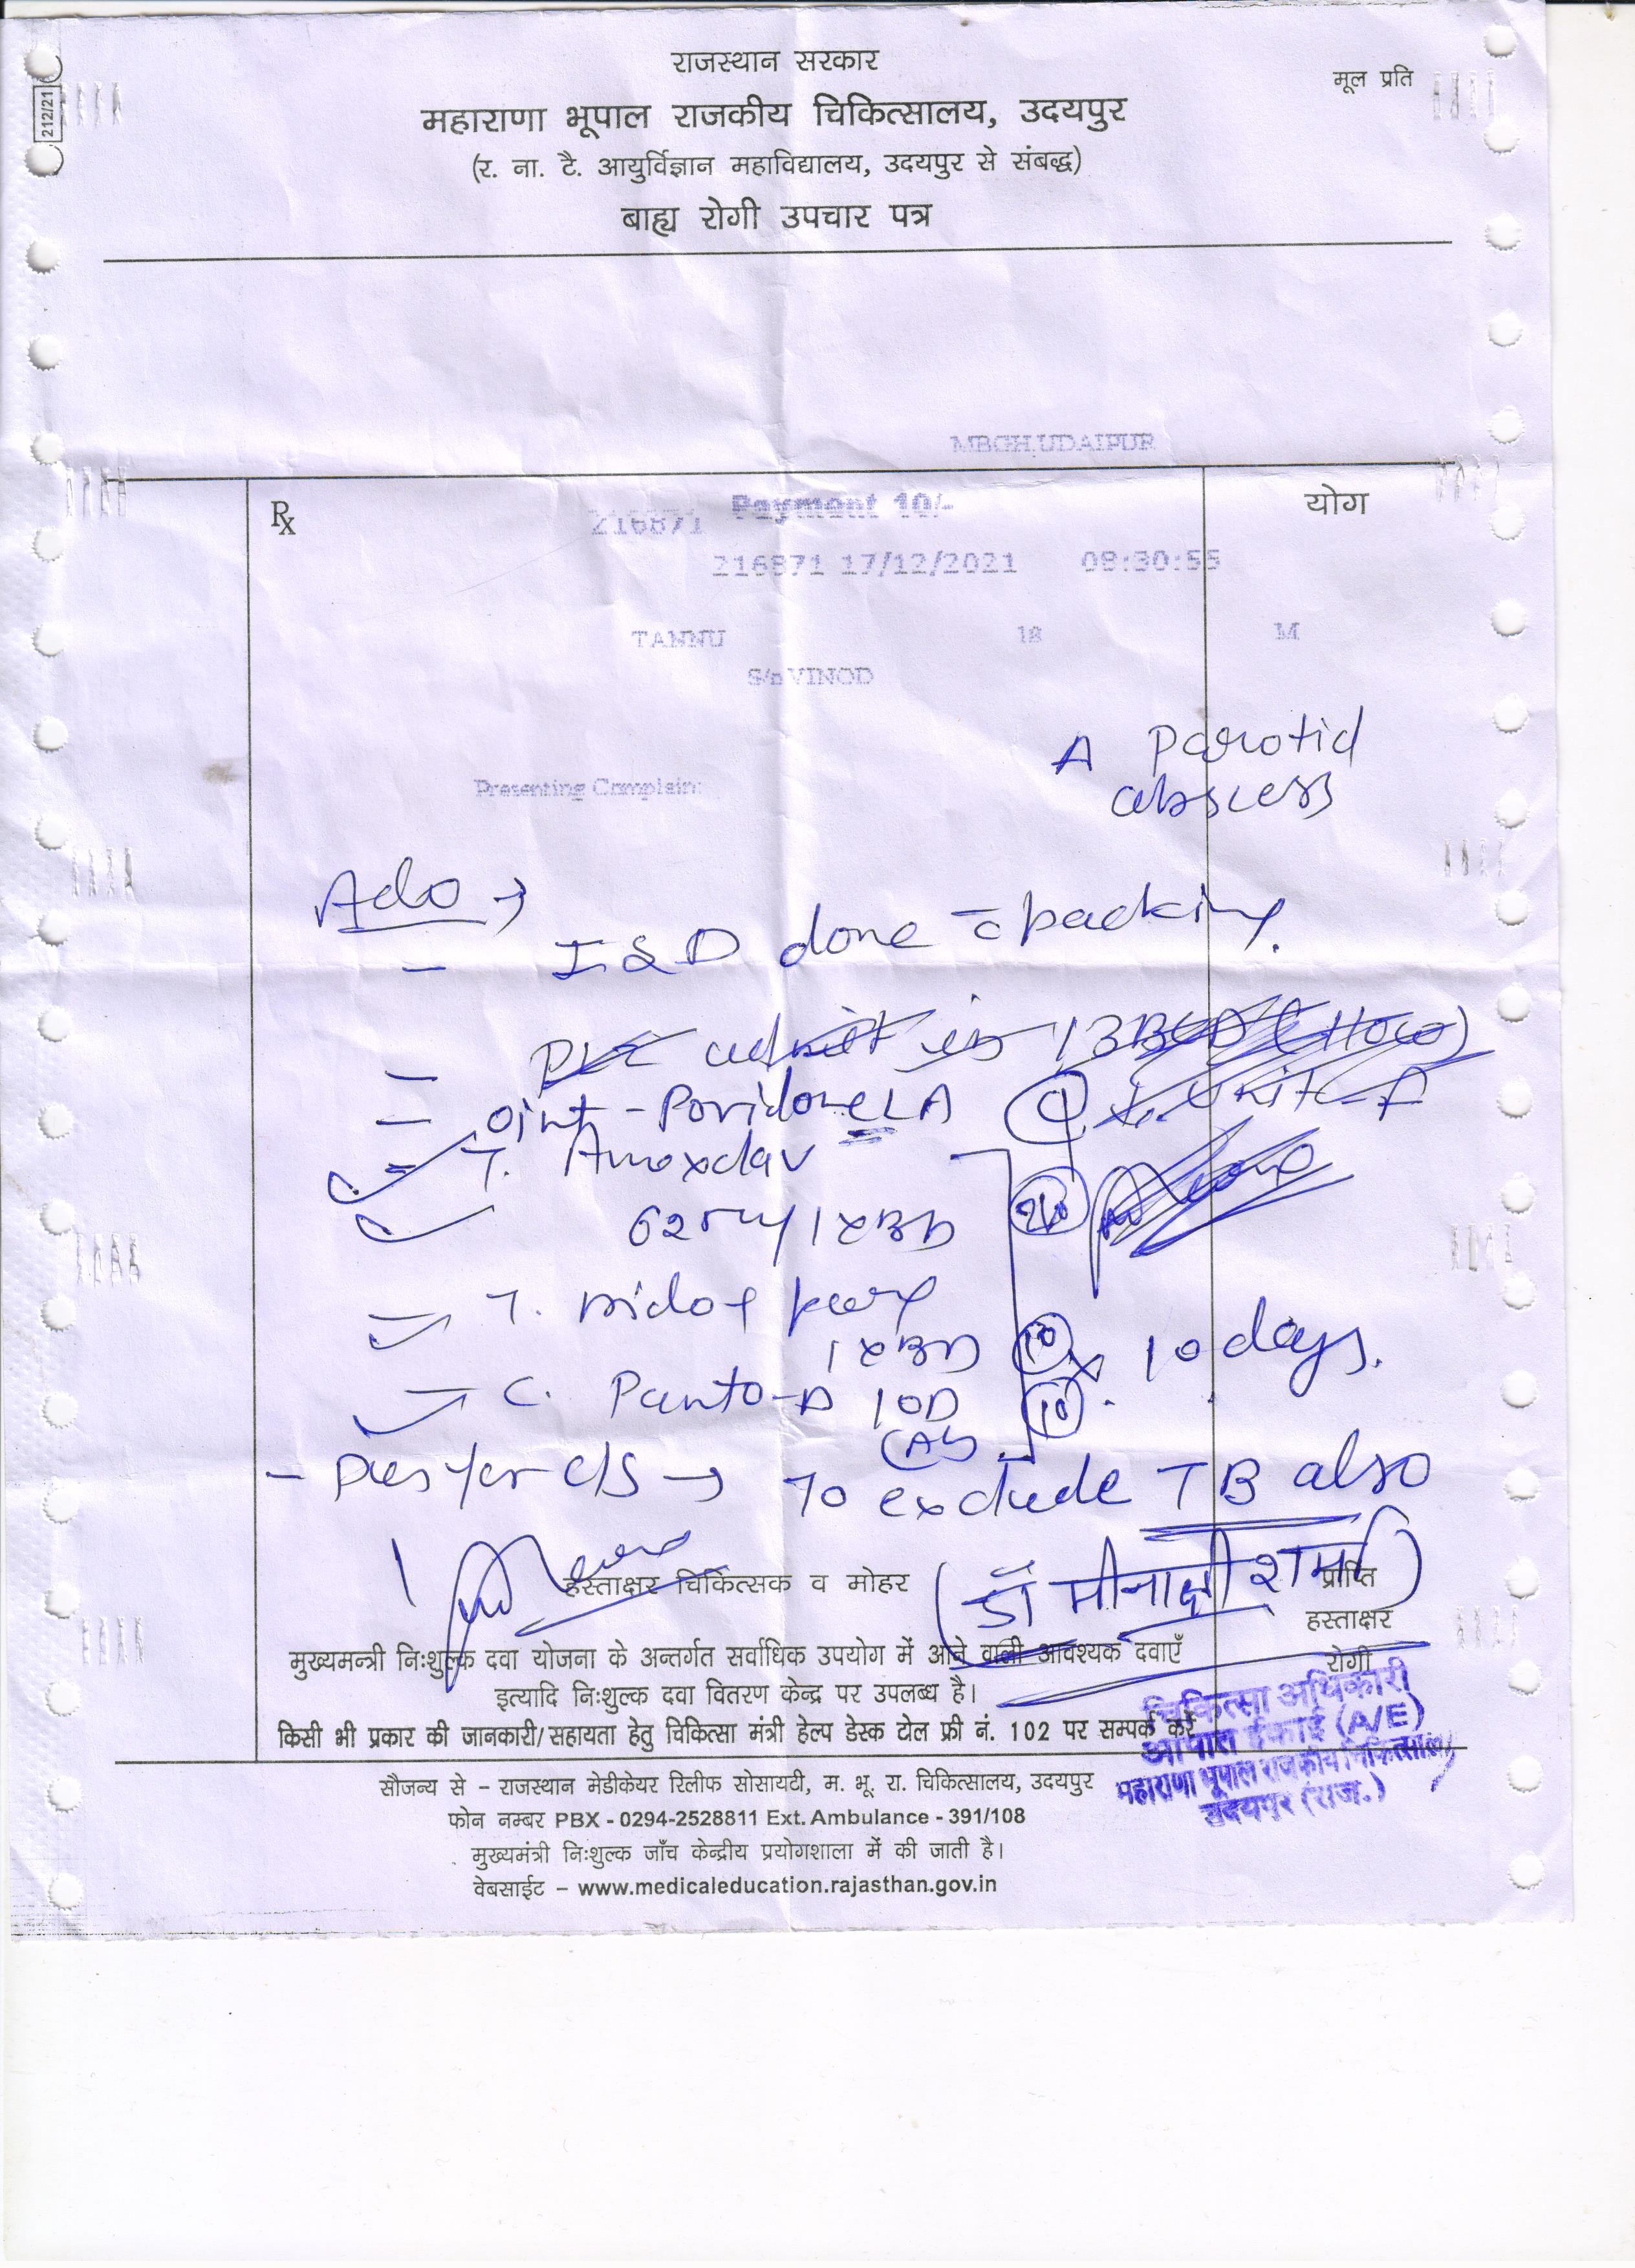 212/21
राजस्थान सरकार
मूल प्रति
महाराणा भूपाल राजकीय चिकित्सालय, उदयपुर
(र. ना. टै. आयुर्विज्ञान महाविद्यालय, उदयपुर से संबद्ध)
बाह्य रोगी उपचार पत्र
MBGH,UDAIPUR
Rx
योग
216871 Payment 10/-
216871 17/12/2021 08:30:55
TANNU 18 M
S/o VINOD
A Parotid
abscess
Presenting Complain:
Ado →
- I & D done c̄ packing.
- admit in
- oint - Povidone LA
- T. Amoxclav
625 mg 1xBD
- T. 
1xBD 10 x 10 days.
- C. Panto-D 1 OD 10
- Pus for c/s → To exclude TB also
हस्ताक्षर चिकित्सक व मोहर (डॉ मीनाक्षी शर्मा) प्राप्ति
हस्ताक्षर
रोगी
मुख्यमन्त्री निःशुल्क दवा योजना के अन्तर्गत सर्वाधिक उपयोग में आने वाली आवश्यक दवाएँ
इत्यादि निःशुल्क दवा वितरण केन्द्र पर उपलब्ध है।
किसी भी प्रकार की जानकारी/सहायता हेतु चिकित्सा मंत्री हेल्प डेस्क टोल फ्री नं. 102 पर सम्पर्क करें
चिकित्सा अधिकारी
आपात ईकाई (A/E)
महाराणा भूपाल राजकीय चिकित्सालय
उदयपुर (राज.)
सौजन्य से – राजस्थान मेडीकेयर रिलीफ सोसायटी, म. भू. रा. चिकित्सालय, उदयपुर
फोन नम्बर PBX - 0294-2528811 Ext. Ambulance - 391/108
मुख्यमंत्री निःशुल्क जाँच केन्द्रीय प्रयोगशाला में की जाती है।
वेबसाईट – www.medicaleducation.rajasthan.gov.in